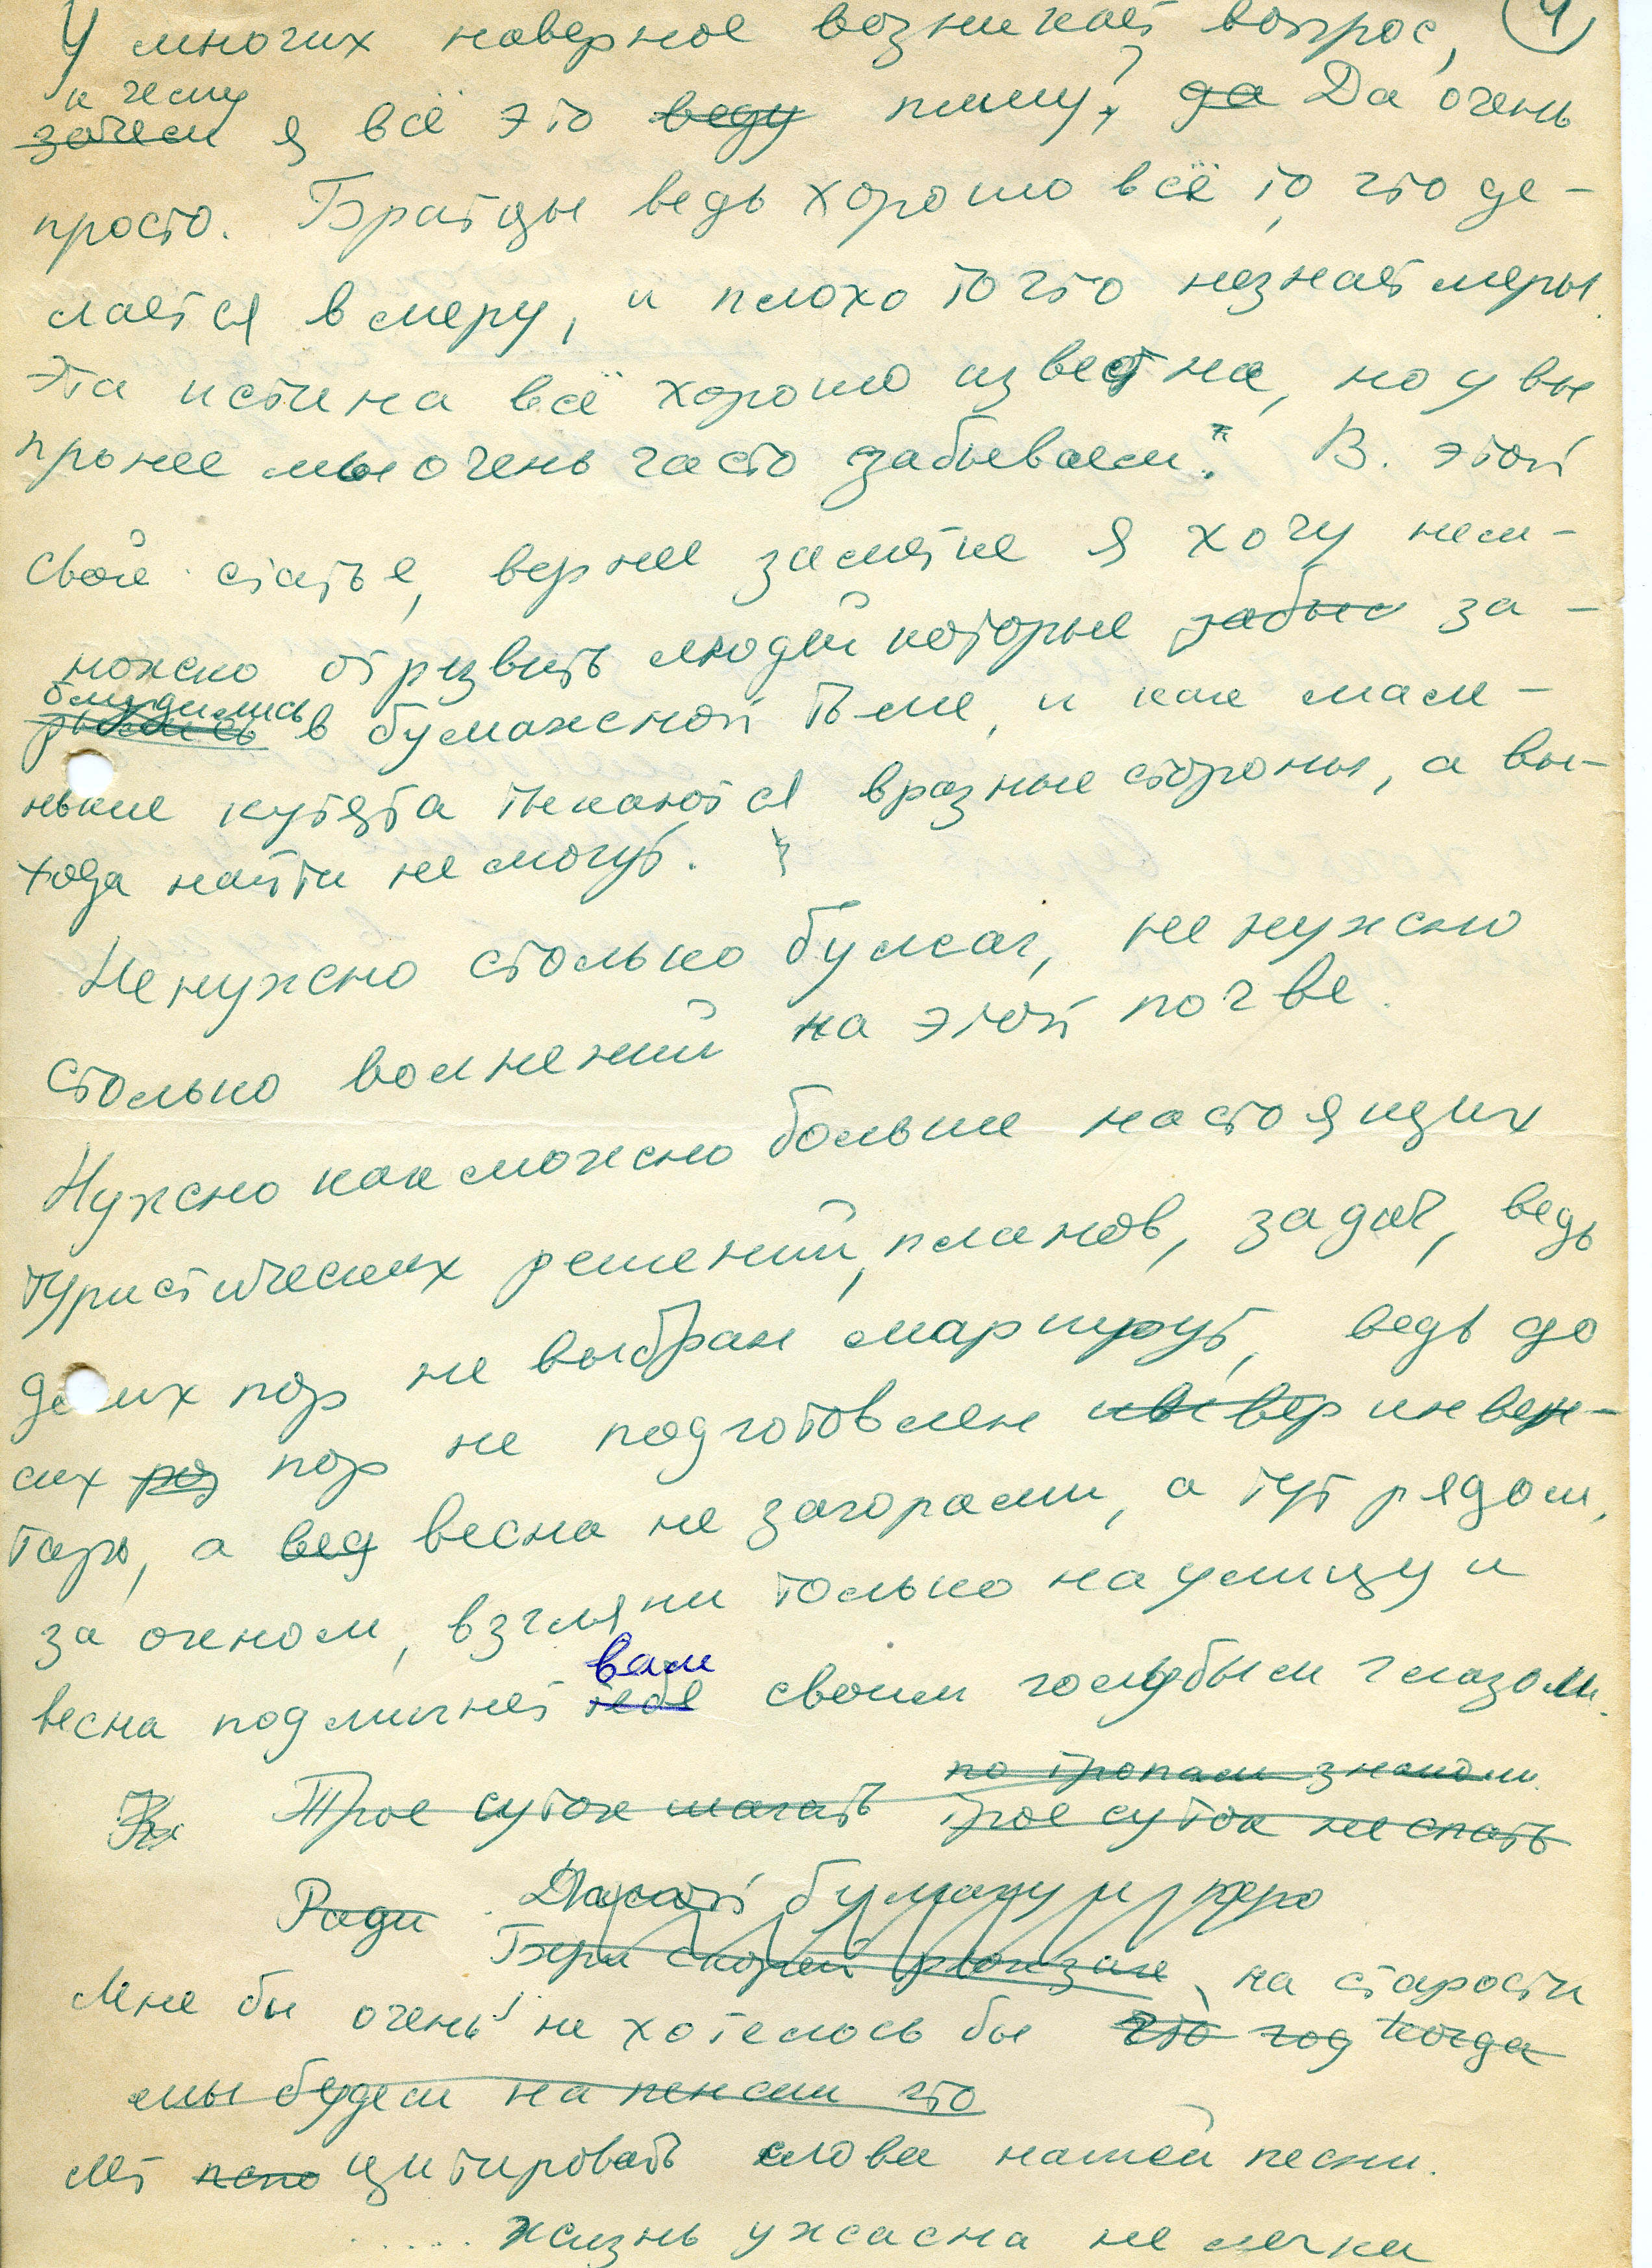 У многих наверное возникает вопрос, 4
к чему
зачем я всё это веду пишу? да Да очень
просто. Братцы ведь хорошо всё то, что де-
лается в меру, и плохо то что незнает меры.
Эта истина всё хорошо известна, но увы
про нее мы очень часто забываем". В. этой
своей статье, вернее заметке я хочу нем-
ножко отрезвить людей которые забыс за-
блудились
рылись в бумажной тьме, и как мал-
нькие кутята тыкаются в разные стороны, а вы-
хода найти не могут.
Не нужно столько бумаг, не нужно
столько волнений на этой почве.
Нужно как можно больше настоящих
туристических решений, планов, задач, ведь
до сих пор не выбран маршрут, ведь до
сих роз пор не подготовлен инвен-
тарь, а вед весна не загорами, а тут рядом,
за окном, взгляни только на улицу и
вам
весна подмигнет тебе своим голубым глазом.
по тропам знаком
Трое суток шагать трое суток не спать
Ради Дакат бумагу и перо
Бери скорей рюкзак на старости
Мне бы очень не хотелось бы что год когда
мы будем на пенсии что
лет цитировать слова нашей песни.
..... жизнь ужасна не легка